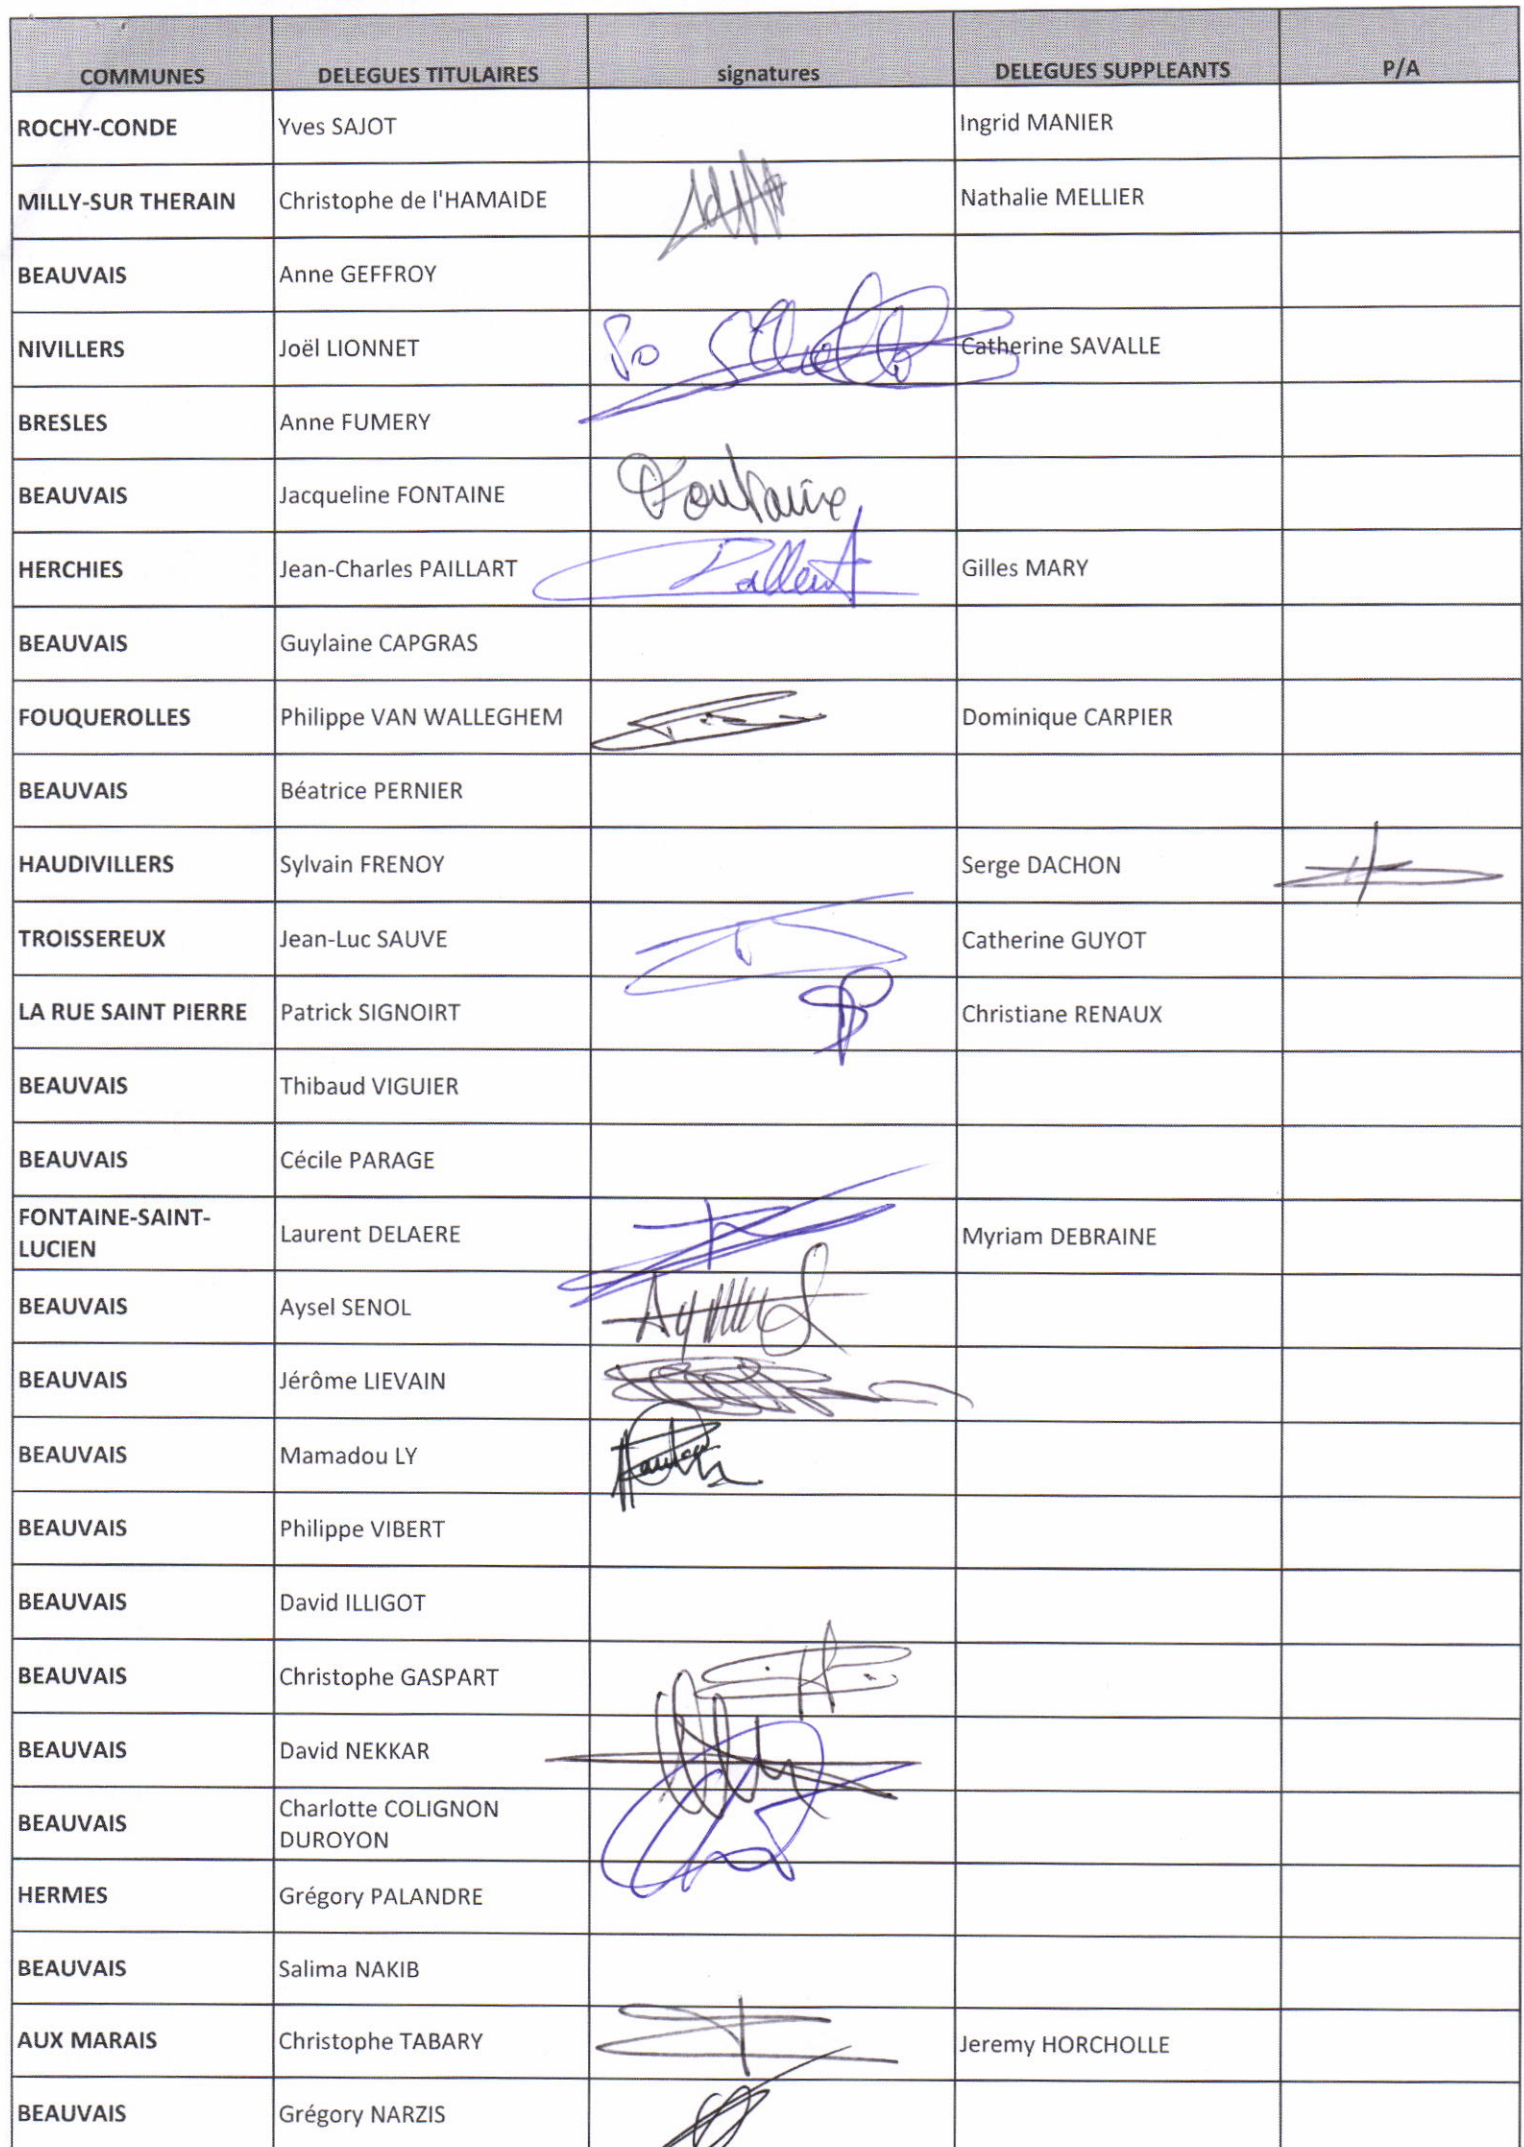 COMMUNES DELEGUES TITULAIRES signatures DELEGUES SUPPLEANTS P/A
ROCHY-CONDE Yves SAJOT Ingrid MANIER
MILLY-SUR THERAIN Christophe de l'HAMAIDE Nathalie MELLIER
BEAUVAIS Anne GEFFROY
NIVILLERS Joël LIONNET Catherine SAVALLE
BRESLES Anne FUMERY
BEAUVAIS Jacqueline FONTAINE Fontaine
HERCHIES Jean-Charles PAILLART Gilles MARY
BEAUVAIS Guylaine CAPGRAS
FOUQUEROLLES Philippe VAN WALLEGHEM Dominique CARPIER
BEAUVAIS Béatrice PERNIER
HAUDIVILLERS Sylvain FRENOY Serge DACHON
TROISSEREUX Jean-Luc SAUVE Catherine GUYOT
LA RUE SAINT PIERRE Patrick SIGNOIRT Christiane RENAUX
BEAUVAIS Thibaud VIGUIER
BEAUVAIS Cécile PARAGE
FONTAINE-SAINT-
LUCIEN Laurent DELAERE Myriam DEBRAINE
BEAUVAIS Aysel SENOL
BEAUVAIS Jérôme LIEVAIN
BEAUVAIS Mamadou LY
BEAUVAIS Philippe VIBERT
BEAUVAIS David ILLIGOT
BEAUVAIS Christophe GASPART
BEAUVAIS David NEKKAR
BEAUVAIS Charlotte COLIGNON
DUROYON
HERMES Grégory PALANDRE
BEAUVAIS Salima NAKIB
AUX MARAIS Christophe TABARY Jeremy HORCHOLLE
BEAUVAIS Grégory NARZIS